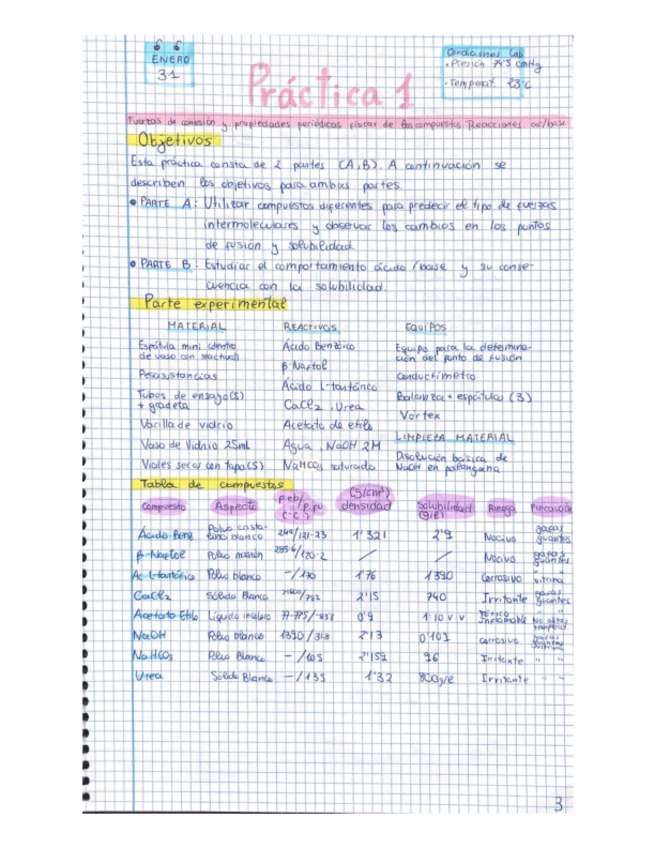 ENERO
31
Práctica 1
Condiciones Lab
• Presión 74'5 cmHg
• Temperat. 23°C
Fuerzas de cohesión y propiedades periódicas físicas de los compuestos Reacciones ac/base
Objetivos
Esta práctica consta de 2 partes (A,B). A continuación se
describen los objetivos para ambas partes.
• PARTE A: Utilizar compuestos diferentes para predecir el tipo de fuerzas
intermoleculares y observar los cambios en los puntos
de fusión y solubilidad.
• PARTE B: Estudiar el comportamiento ácido/base y su conse-
cuencia con la solubilidad
Parte experimental
MATERIAL REACTIVOS EQUIPOS
Espátula mini (dentro
de vaso con reactivo)
Pesasustancias
Tubos de ensayo(5)
+ gradeta
Varilla de vidrio
Vaso de Vidrio 25mL
Viales secos con tapa(5)
Ácido Benzoico
β-Naftol
Ácido L-tartárico
CaCl2, Urea
Acetato de etilo
Agua, NaOH 2M
NaHCO3 saturado
Equipo para la determina-
ción del punto de fusión
Conductímetro
Balanza + espátulas (3)
Vortex
LIMPIEZA MATERIAL
Disolución básica de
NaOH en palangana
Tabla de compuestos
Compuesto Aspecto P.eb/P.fu (°C) (g/cm³) densidad Solubilidad (g/l) Riesgo Precaución
Ácido Benz. Polvo crista-lino blanco 249/121-23 1'321 2'9 Nocivo gafas guantes
β-Naftol Polvo marrón /120-2 / / Nocivo gafas guantes
Ac. L-tartárico Polvo blanco -/170 1'76 1390 Corrosivo vitrina
CaCl2 Sólido Blanco /782 2'15 740 Irritante gafas guantes
Acetato Etilo Líquido incoloro 0'9 1:10 v v Tóxico Inflamable No altas temperat
NaOH Polvo blanco 1390/318 2'13 corrosivo
NaHCO3 Polvo Blanco - / 2'159 96 Irritante " "
Urea Sólido Blanco -/133 1'32 Irritante " "
3